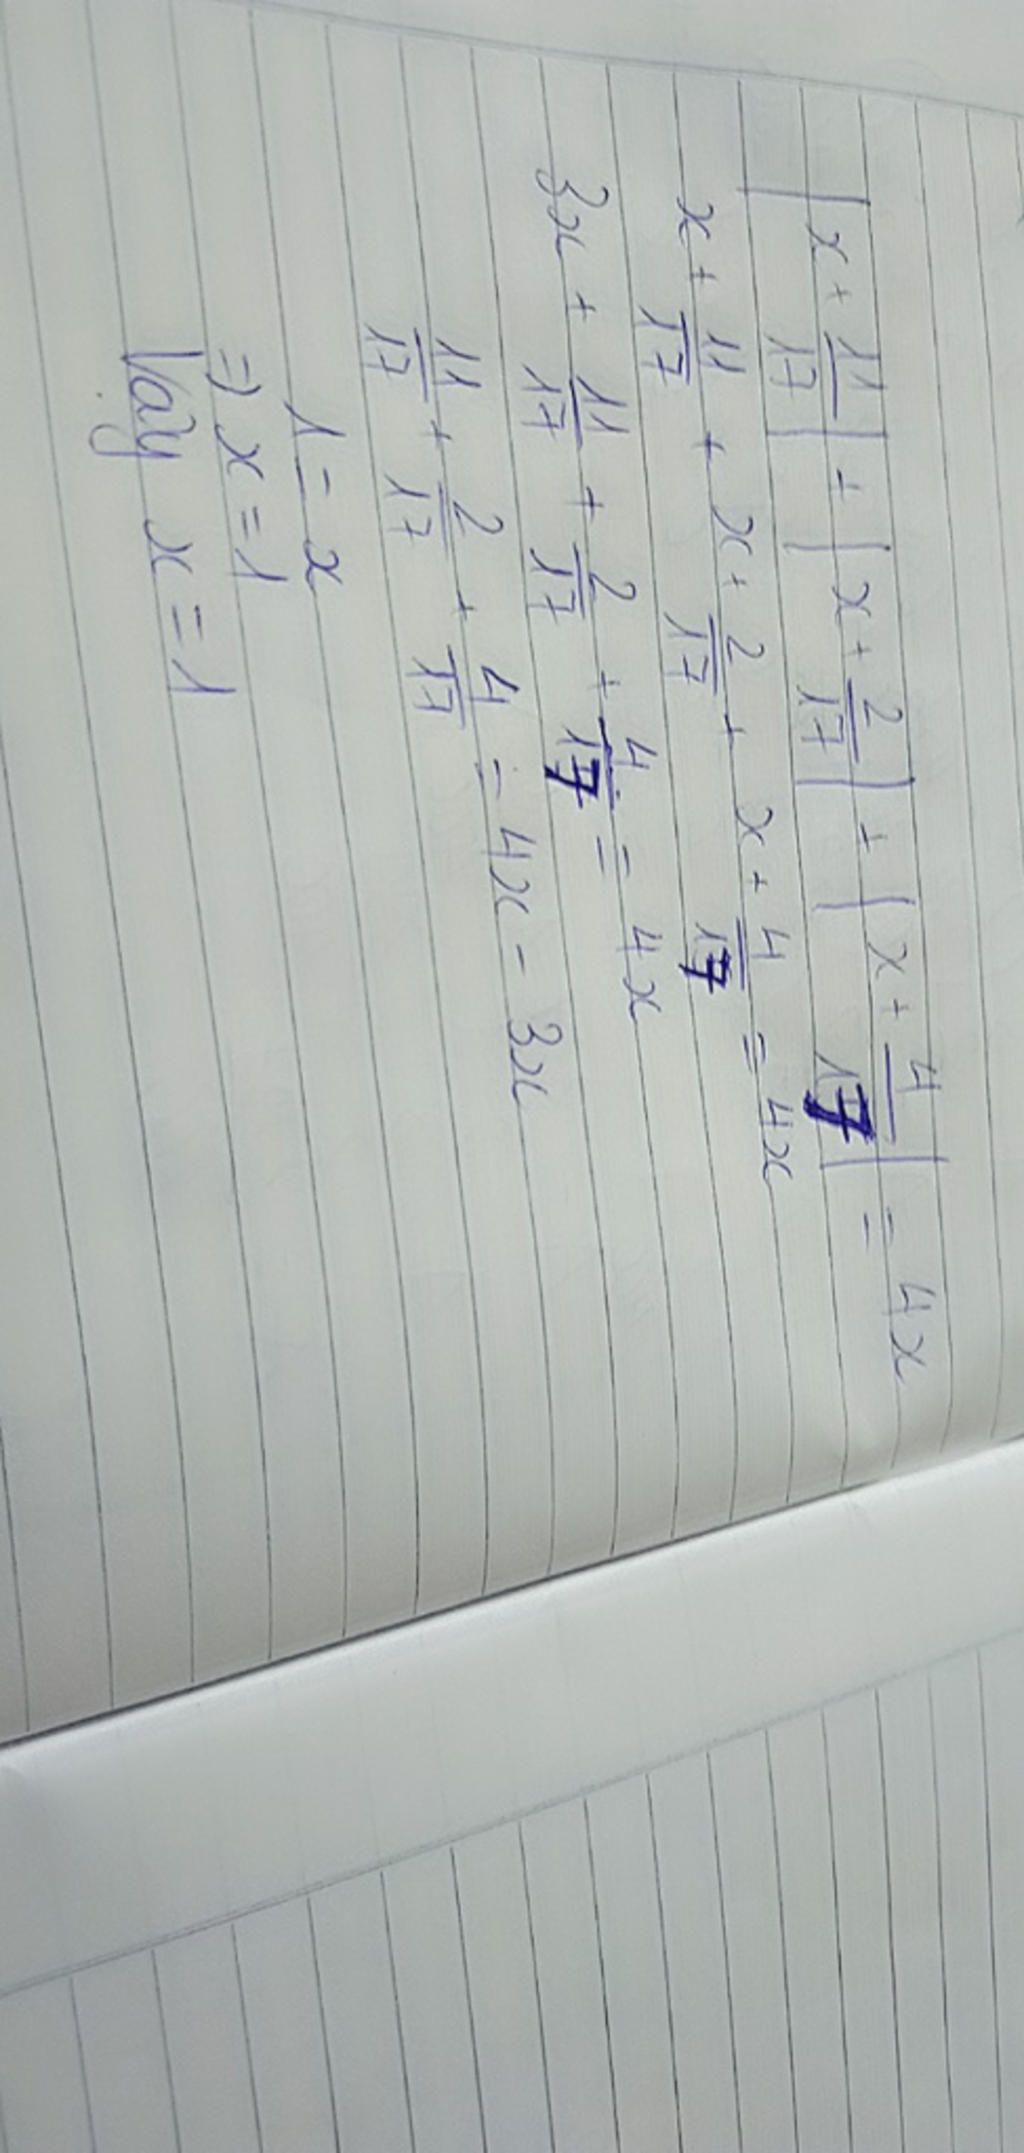 |x + 11/17| + |x + 2/17| + |x + 4/17| = 4x
x + 11/17 + x + 2/17 + x + 4/17 = 4x
3x + 11/17 + 2/17 + 4/17 = 4x
11/17 + 2/17 + 4/17 = 4x - 3x
1 = x
=> x = 1
Vậy x = 1